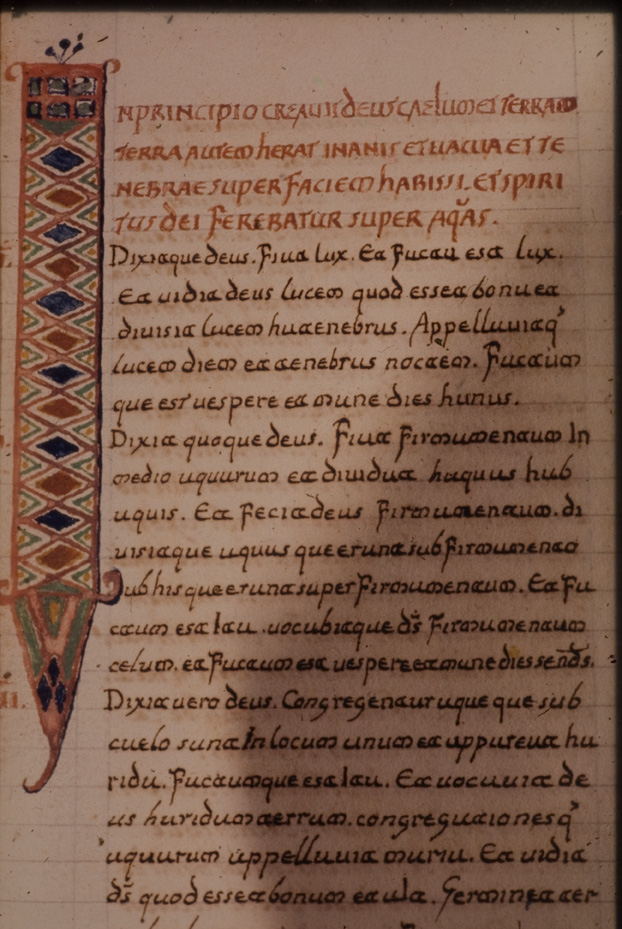 IN PRINCIPIO CREAVIT DEUS CAELUM ET TERRAM
TERRA AUTEM hERAT INANIS ET UACUA ET TE
NEBRAE SUPER FACIEM hABISSI. ET SPIRI
TUS DEI FEREBATUR SUPER AQAS.
Dixitque deus. Fiat lux. Et facta est lux.
Et uidit deus lucem quod esset bona et
diuisit lucem ha tenebras. Appellauitq'
lucem diem et tenebras noctem. Factum
que est uespere et mane dies hunus.
Dixit quoque deus. Fiat firmamentum In
medio aquarum et diuidat haquas hab
aquis. Et fecit deus firmamentum. di
uisitque aquas que erant sub firmamento
ab his que erant super firmamentum. Et fa
ctum est Ita. uocabitque ds firmamentum
celum. et factum est uespere et mane dies sends.
Dixit uero deus. Congregentur aque que sub
caelo sunt In locum unum et appareat ha
rida. Factumque est Ita. Et uocauit de
us haridam terram. congregationesq'
aquarum appellauit maria. Et uidit
ds quod esset bonum et ait. Germinet ter